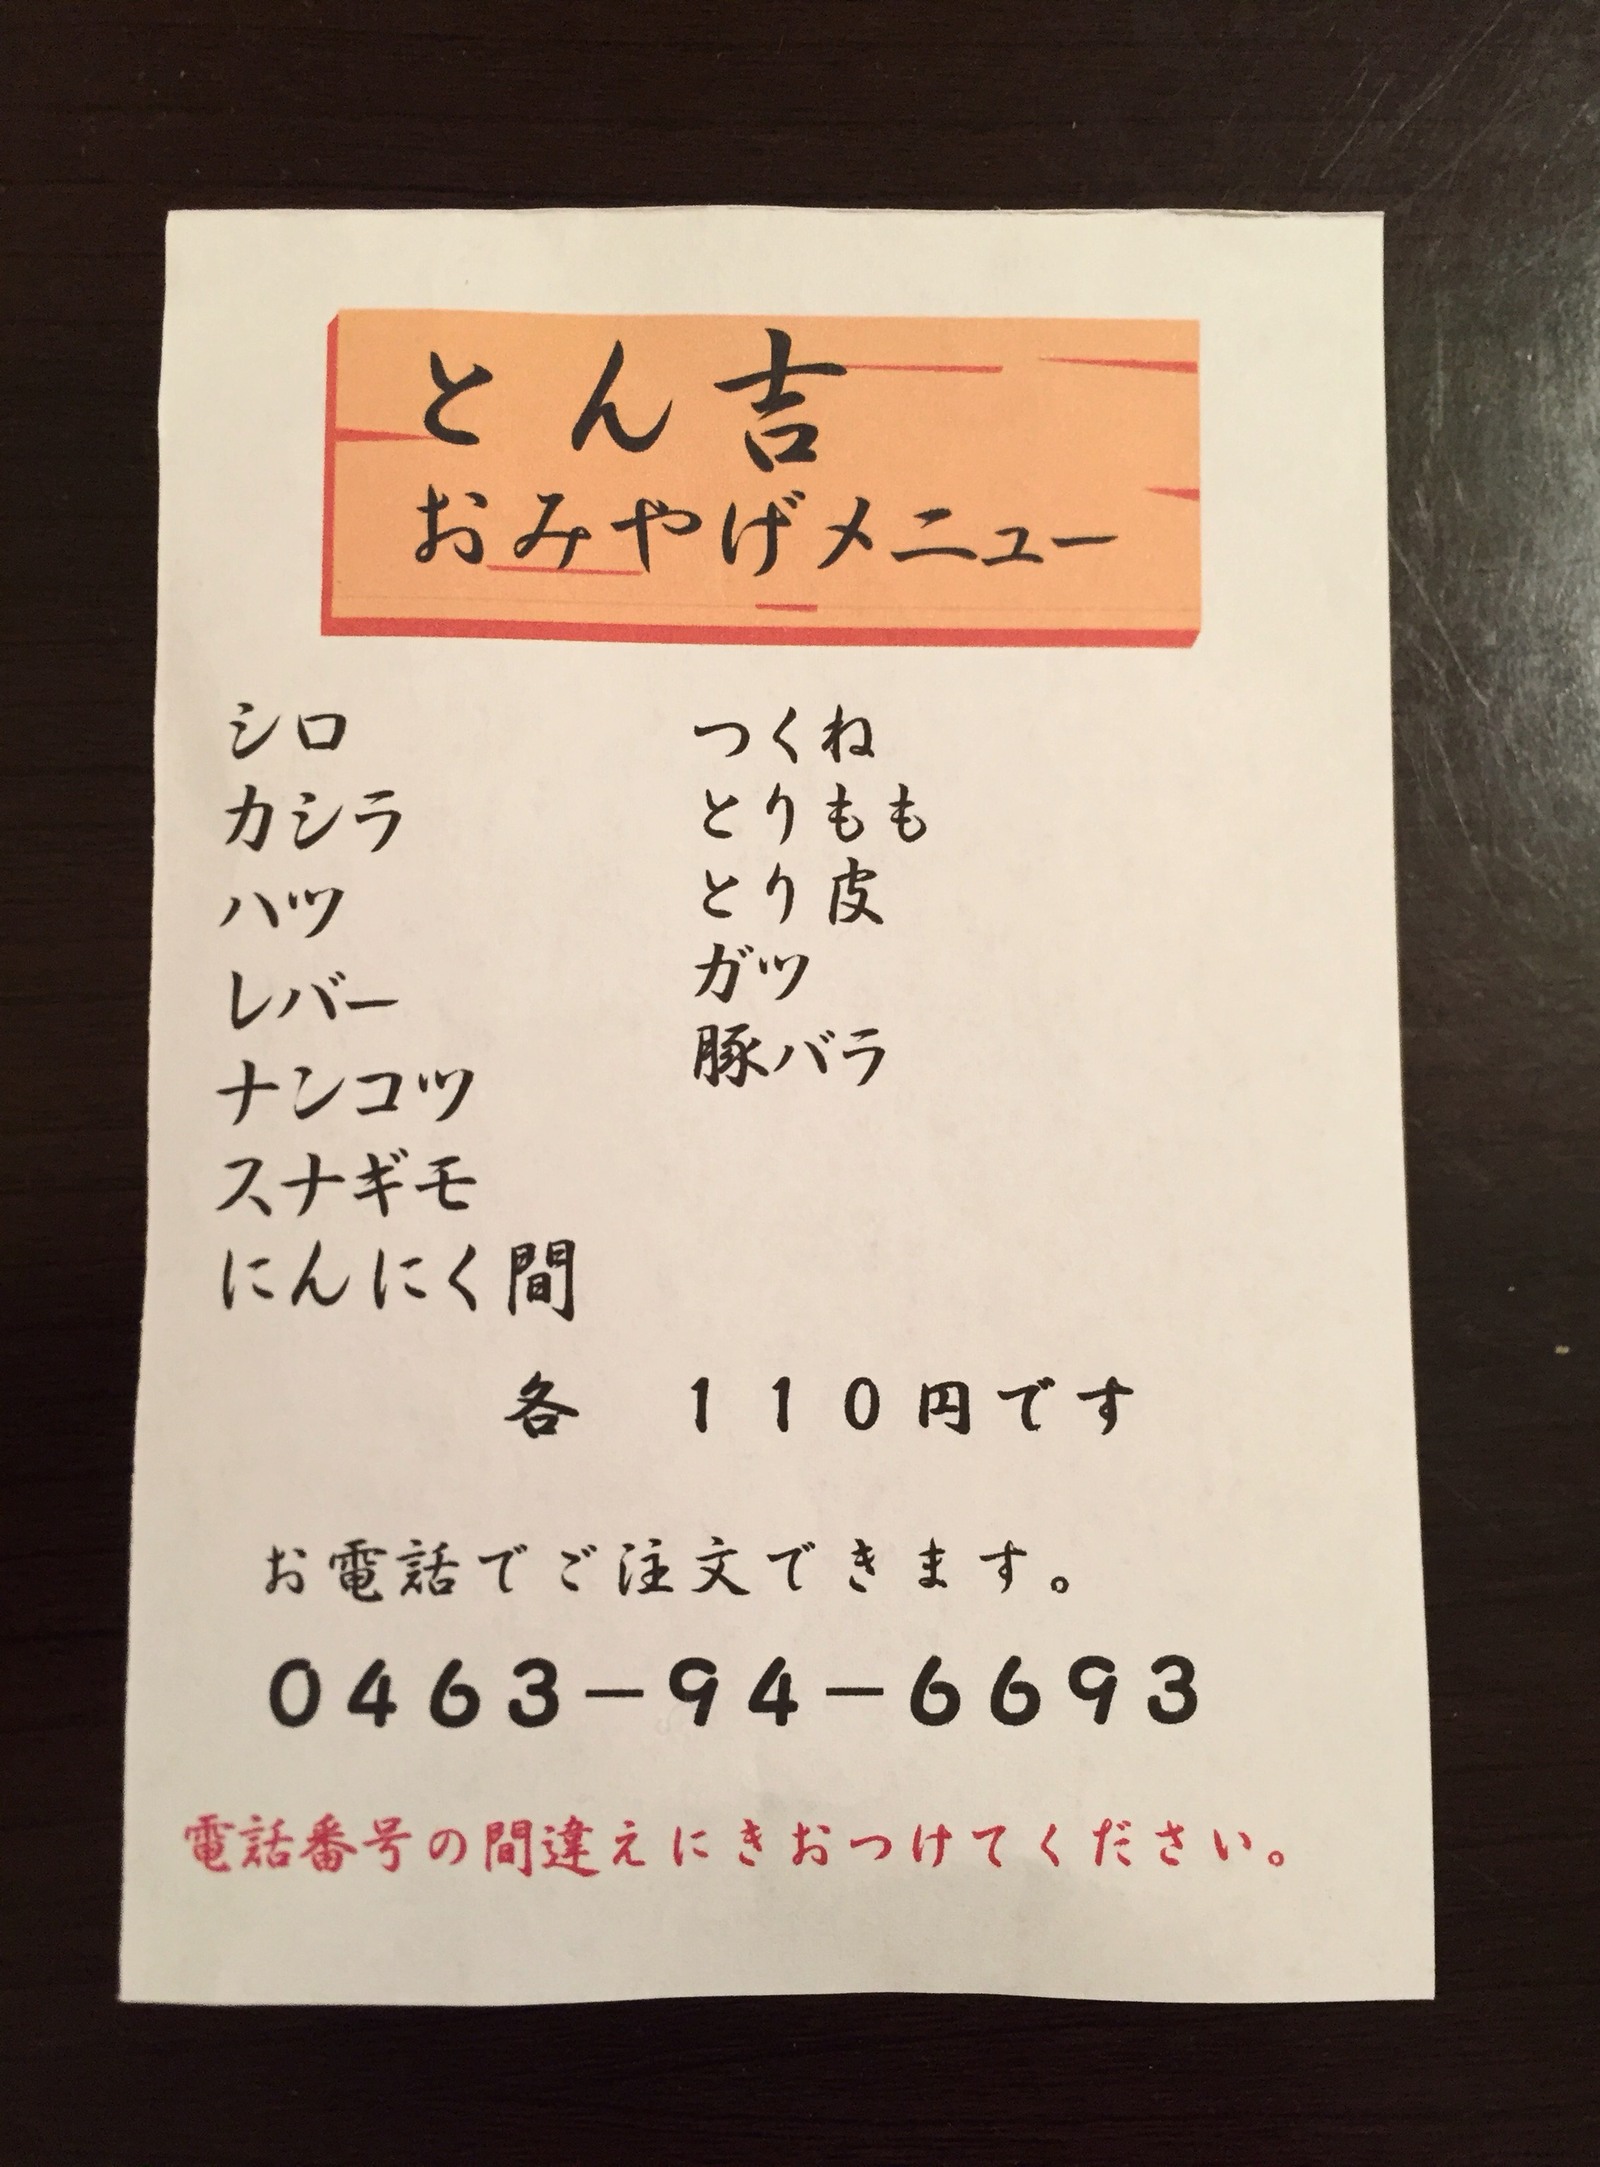 とん吉
おみやげメニュー
シロ
カシラ
ハツ
レバー
ナンコツ
スナギモ
にんにく間
つくね
とりもも
とり皮
ガツ
豚バラ
各　１１０円です
お電話でご注文できます。
０４６３－９４－６６９３
電話番号の間違えにきおつけてください。